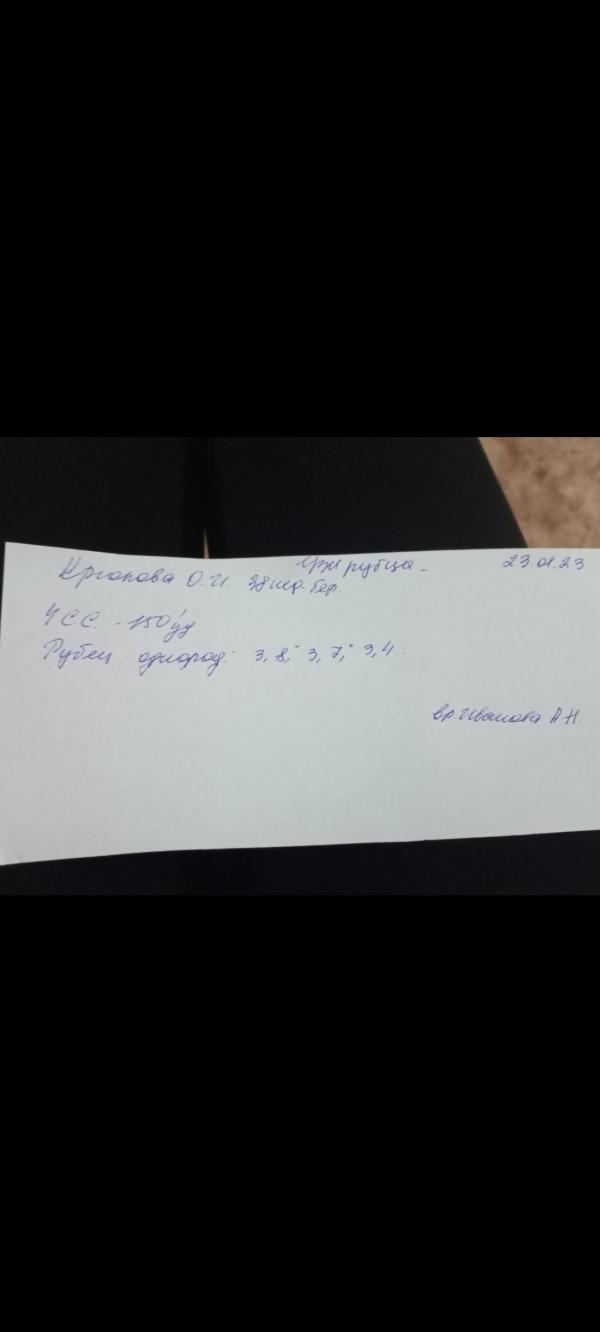 узи рубца - 23.01.23
Крюкова О.И. 38 нед. бер.
ЧСС - 150 уд.
Рубец однород: 3,8; 3,7; 3,4.
вр. Иванова А.Н.